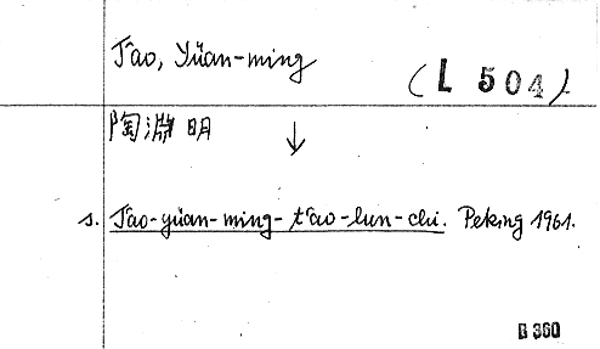 T'ao, Yüan-ming
(L 504)
陶淵明
↓
s. T'ao-yüan-ming-t'ao-lun-chi. Peking 1961.
B 360